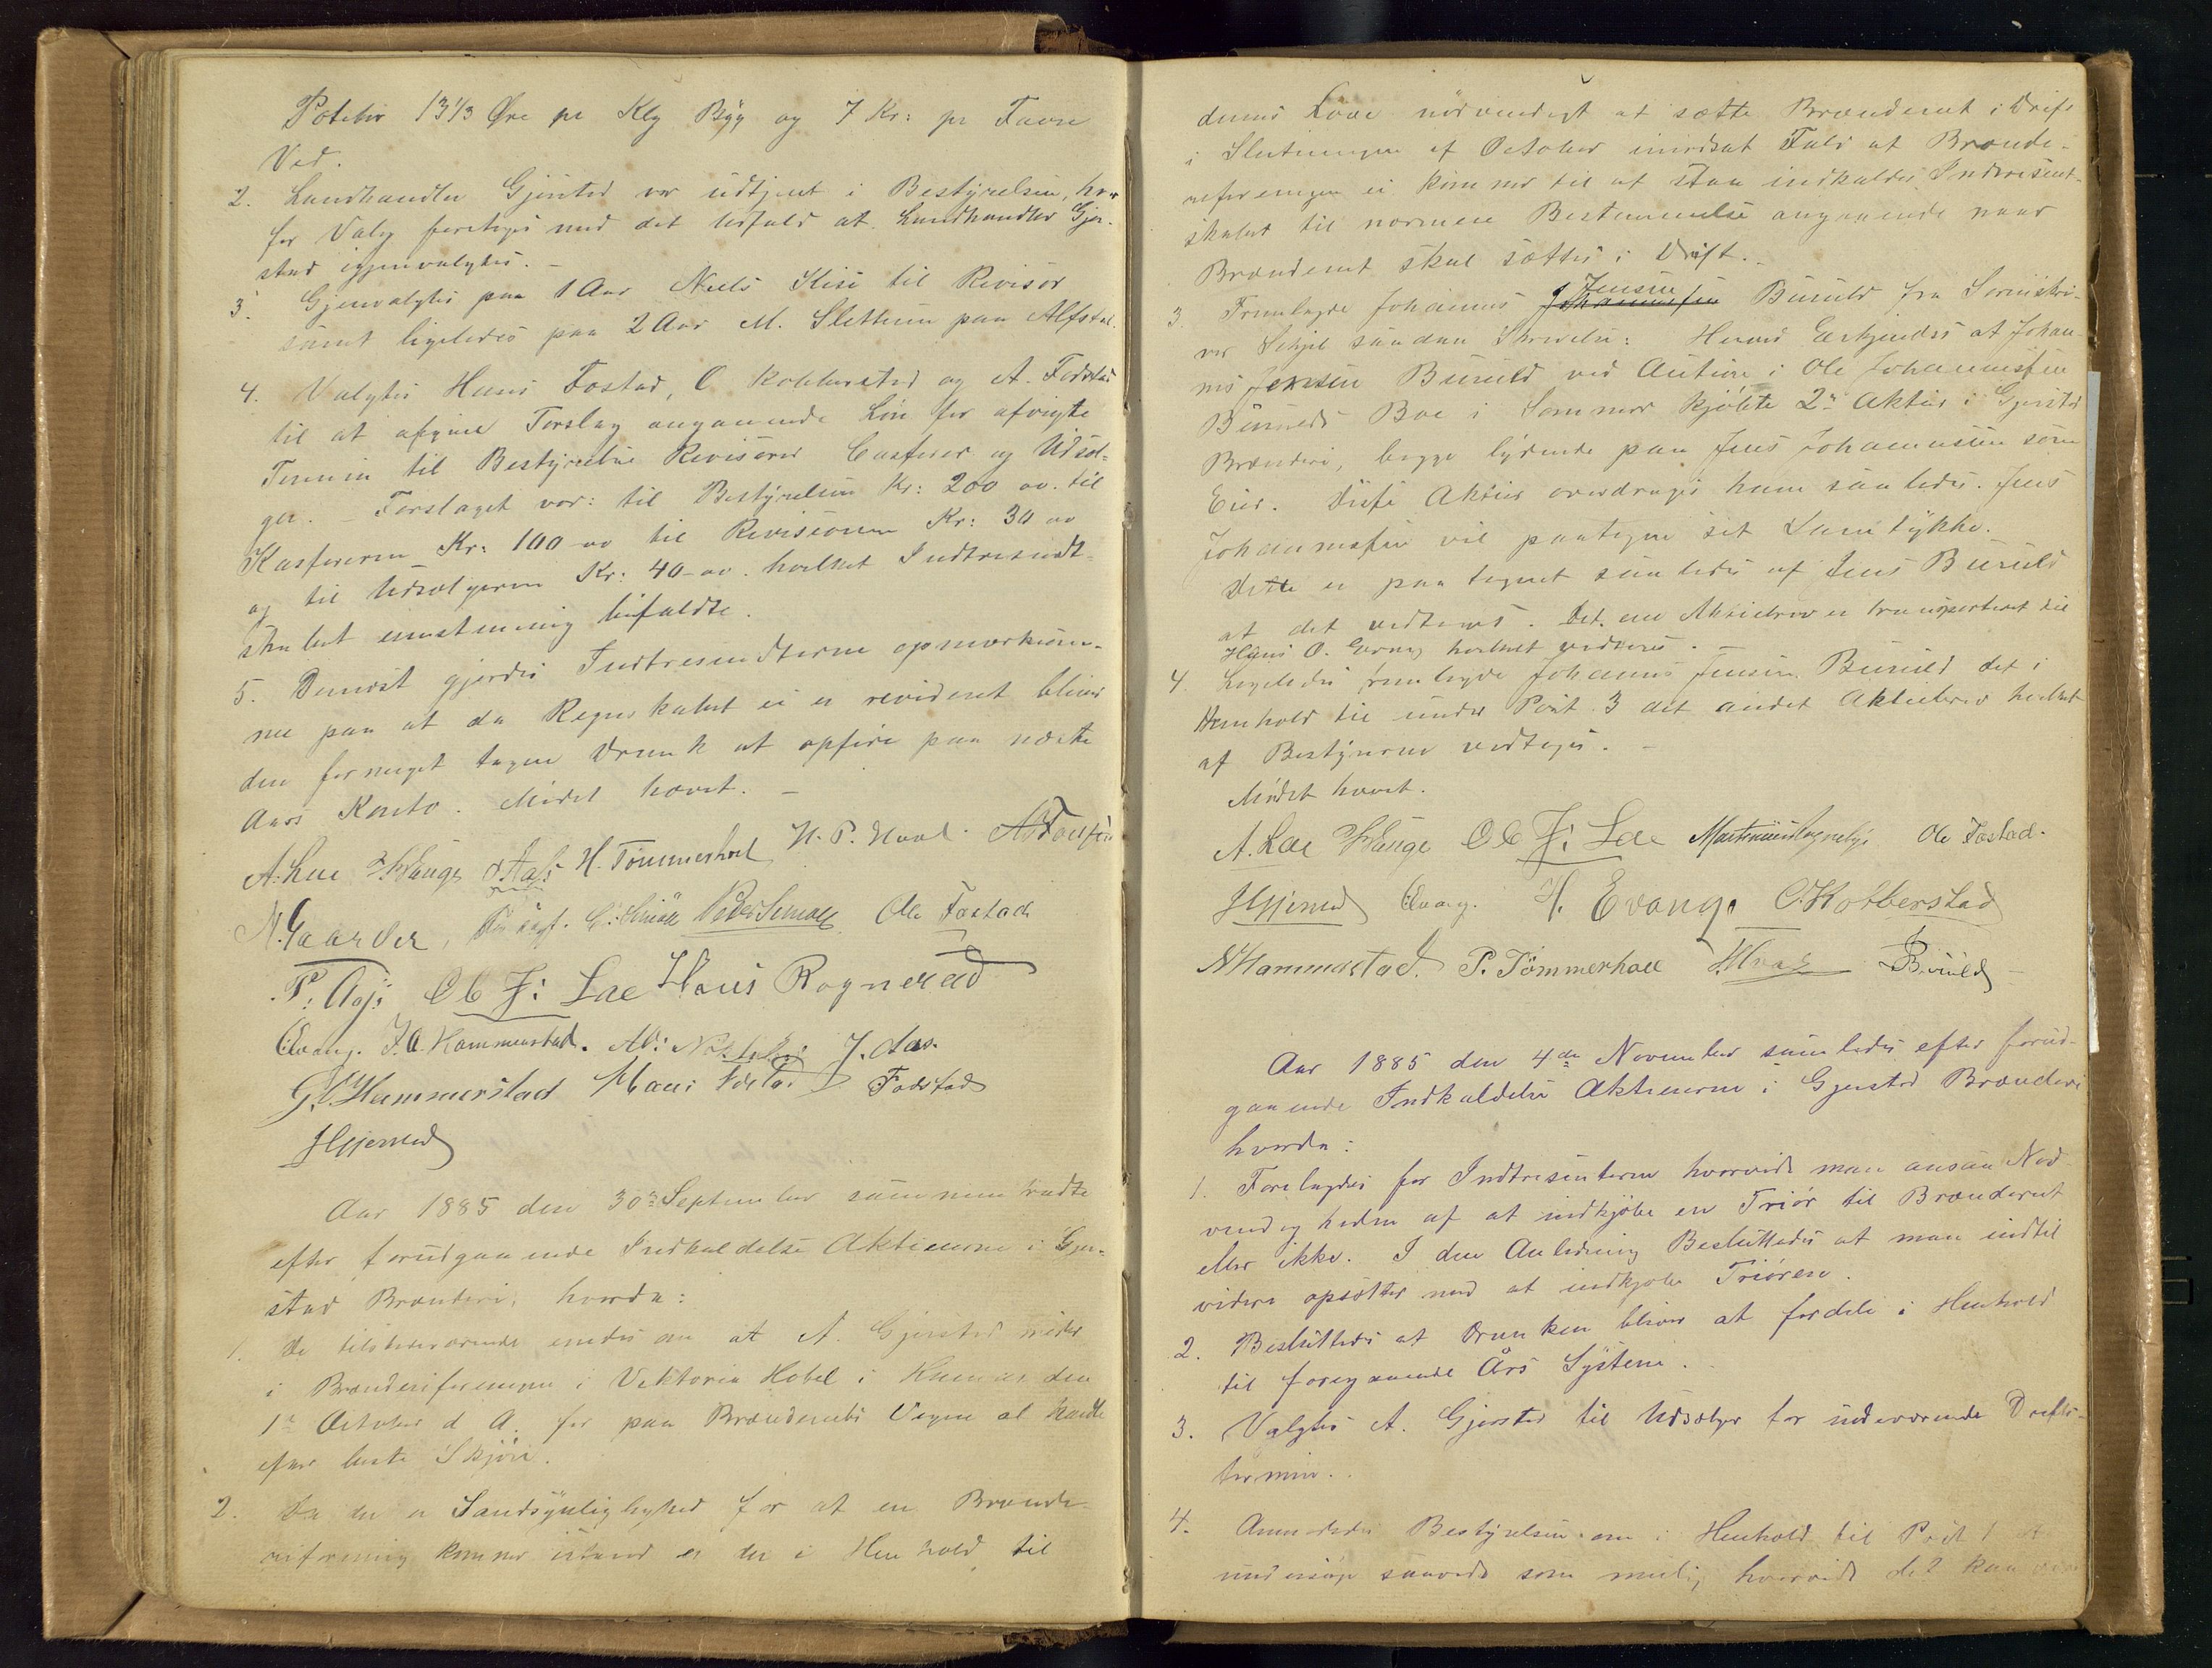 Poteter 13 1/3 Øre pr Klg Byg og 7 Kr: pr Favn
Ved.
2. Landhandler Gjerstad var udtjent i Bestyrelsen, hvor
for Valg foretoges med det Udfald at Landhandler Gjer-
stad igjenvalgtes. –
3. Gjenvalgtes paa 1 Aar Niels Kise til Revisor
samt ligeledes paa 2 Aar M. Slettum paa Alfstad.
4. Valgtes Hans Fostad, C. Kolberstad og A. Fodstad
til at afgive Forslag angaaende Løn for afvigte
Termin til Bestyrelse Revisorer Casserer og Udsæl-
ger. – Forslaget var: til Bestyrelsen Kr: 200 oo. til
Kassereren Kr: 100 oo til Revisionen Kr: 30 oo
og til Udsælgeren Kr: 40 oo. hvilket Indtresendt-
skabet enstemmig bifaldte.
5. Dernæst gjordes Indtresendterne opmærksom-
me paa at da Regnskabet ei er revideret bliver
den formeget tagne Drank at opføre paa næste
Aars Konto. Mødet hævet. –
A. Lae H. Hauge H. Tømmerhol H. P. Hval
N. Gaarder, Ole Fostad
P. Aas: Ole J: Lae Hans Rognerud
Evang. J. A. Hammerstad. J. Aas.
G. Hammerstad Hans Fostad Fodstad
Gjerstad
Aar 1885 den 30te September sammentraadte
efter forudgaaende Indkaldelse Aktieeierne i Gjer-
stad Brænderi, hvorda:
1. De tilstedeværende enedes om at A. Gjerstad møder
i Brænderiforeningen i Viktoria Hotel i Hamar den
1te October d. A. for paa Brænderiets Vegne at handle
efter beste Skjøn.
2. Da der er Sandsynlighed for at en Brænde-
riforening kommer istand er der i Henhold til
dennes Love nødvendigt at sætte Brænderiet i Drift
i Slutningen af October imidlertid Fald at Brænde-
riforeningen ei kommer til at staa indkaldes Interesent-
skabet til nærmere Bestemmelse angaaende naar
Brænderiet skal sættes i Drift.
3. Fremlagde Johannes Jensen Buruld fra
saadan Skrivelse: Herved Erkjendes at Johan-
nes Jensen Buruld ved Auktion i Ole Johannessen
Burulds Boe i Sommer kjøbte 2de Aktier i Gjerstad
Brænderi, begge lydende paa Jens Johannessen som
Eier. Disse Aktier overdrages ham saaledes. Jens
Johannessen vil paategne sit Samtykke.
Dette er paategnet saaledes af Jens Buruld
at det vedtages. Det ene Aktiebrev er transporteret til
Hans O. hvilket vedtoges. –
4. Ligeledes fremlagde Johannes Jensen Buruld det i
Henhold til under Post 3 det andet Aktiebrev hvilket
af Bestyrerne vedtoges. –
Mødet hævet.
A. Lae H. Hauge Ole J: Lae Ole Fostad.
Gjerstad Evang. H. Evang. C. Kolberstad
N Hammerstad. P. Tømmerhol Hval Buruld
Aar 1885 den 4de November samledes efter forud-
gaaende Indkaldelse Aktieeierne i Gjerstad Brænderi
hvorda:
1. Forelagdes for Indtresenterne hvorvidt man ansaa Nød-
vendigheden af at indkjøbe en Triør til Brænderiet
eller ikke. I den Anledning Besluttedes at man indtil
videre opsætter med at indkjøbe Triøren.
2. Besluttedes at Dranken bliver at fordele i Henhold
til foregaaende Års System.
3. Valgtes A. Gjerstad til Udsælger for indeværende Drifts-
termin.
4. Anmodedes Bestyrelsen om i Henhold til Post 1 at
undersøge saavidt som mulig hvorvidt det kan